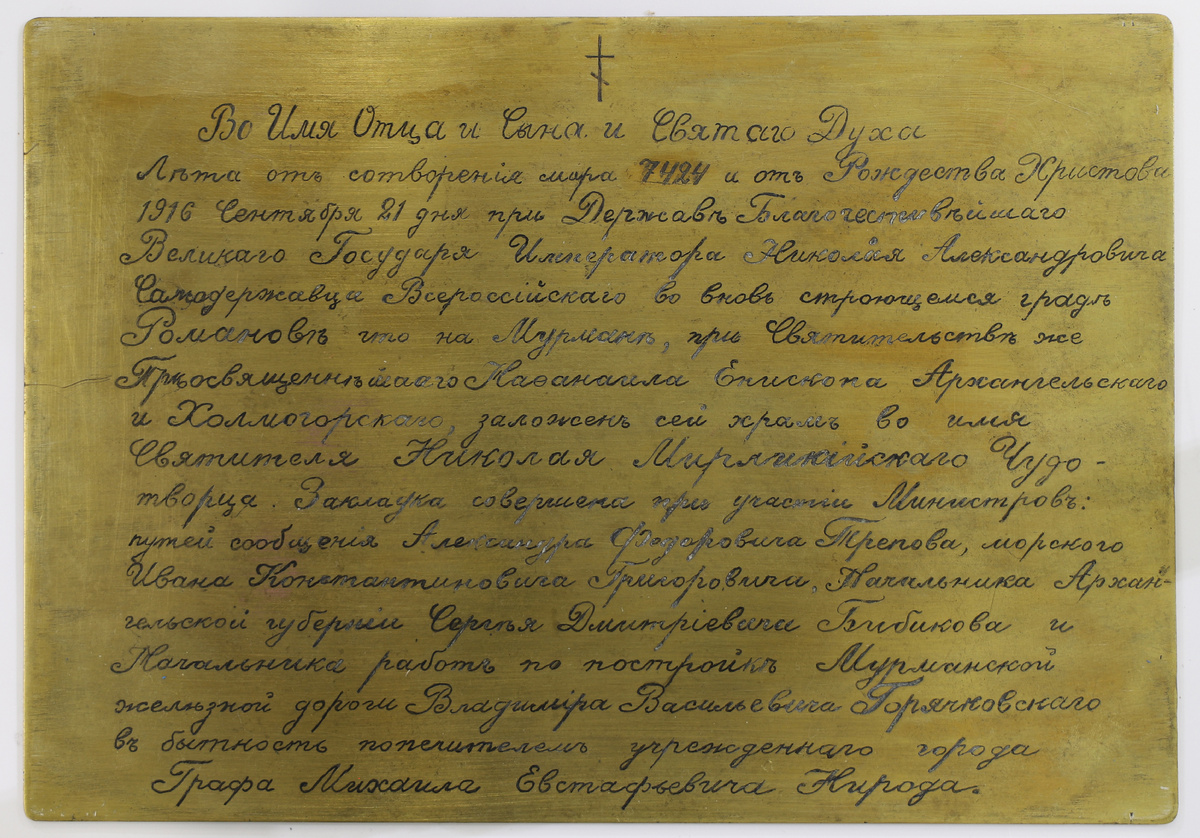 Во Имя Отца и Сына и Святаго Духа
Лѣта отъ сотворенія мира 7424 и отъ Рождества Христова
1916 Сентября 21 дня при Державѣ Благочестивѣйшаго
Великаго Государя Императора Николая Александровича
Самодержавца Всероссійскаго во вновь строющемся градѣ
Романовѣ что на Мурманѣ, при Святительствѣ же
Преосвященнѣйшаго Наѳанаила Епископа Архангельскаго
и Холмогорскаго, заложенъ сей храмъ во имя
Святителя Николая Мирликійскаго Чудо-
творца. Закладка совершена при участіи Министровъ:
путей сообщенія Александра Федоровича Трепова, морского
Ивана Константиновича Григоровича, Начальника Архан-
гельской губерніи Сергѣя Дмитріевича Бибикова и
Начальника работъ по постройкѣ Мурманской
желѣзной дороги Владиміра Васильевича Горячковскаго
въ бытность попечителемъ учрежденнаго города
Графа Михаила Евстафьевича Нирода.